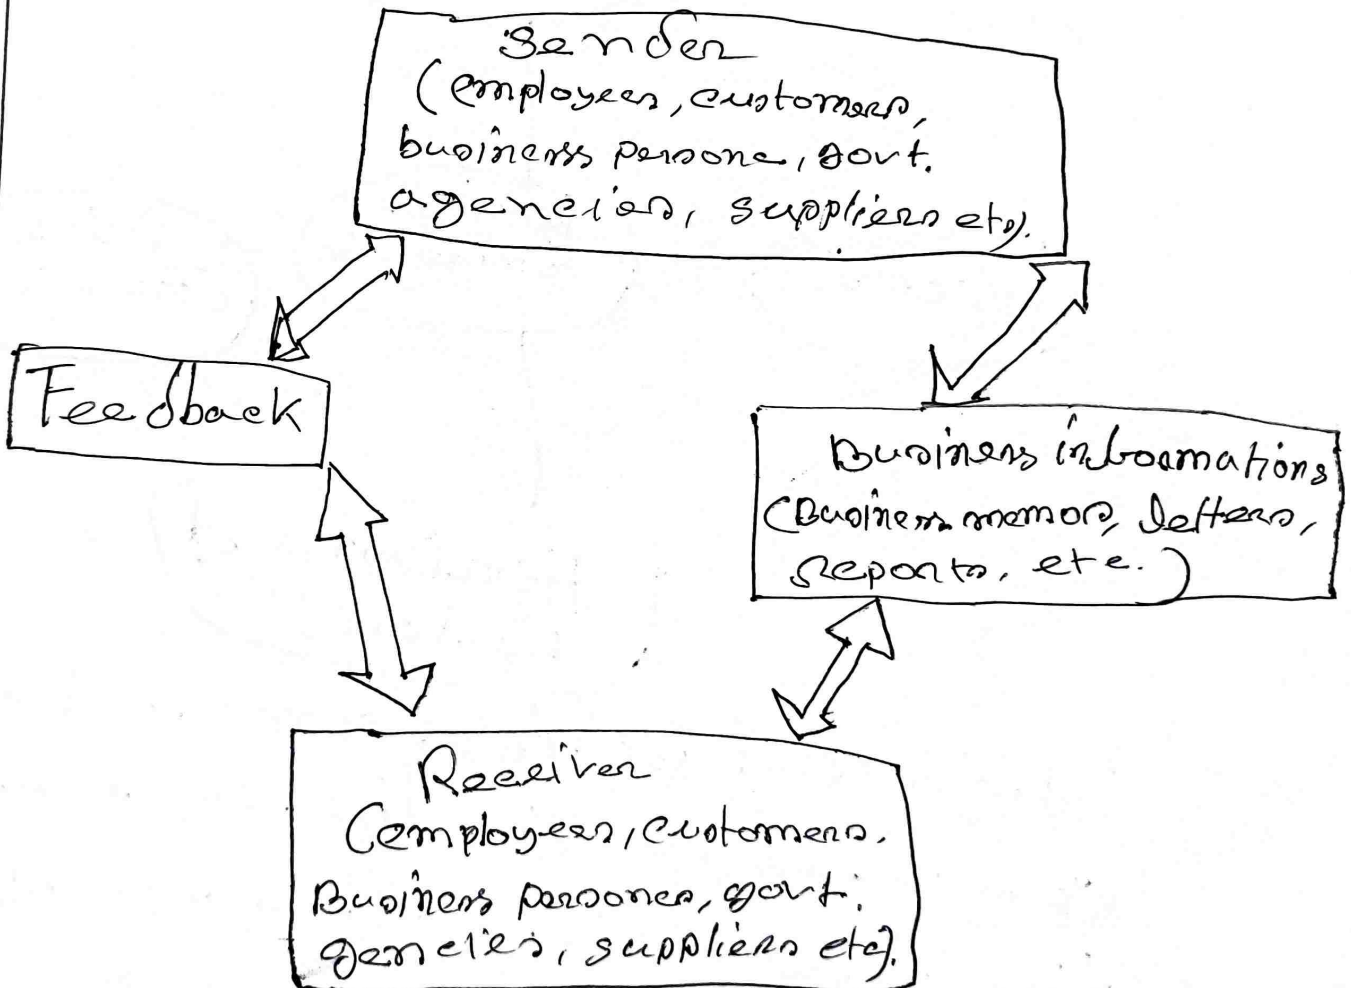 Sender
(employees, customers,
business persons, govt.
agencies, suppliers etc).
Feedback
Business informations
(Business memos, letters,
reports, etc.)
Receiver
(employees, customers.
Business persones, govt.
gencies, suppliers etc).